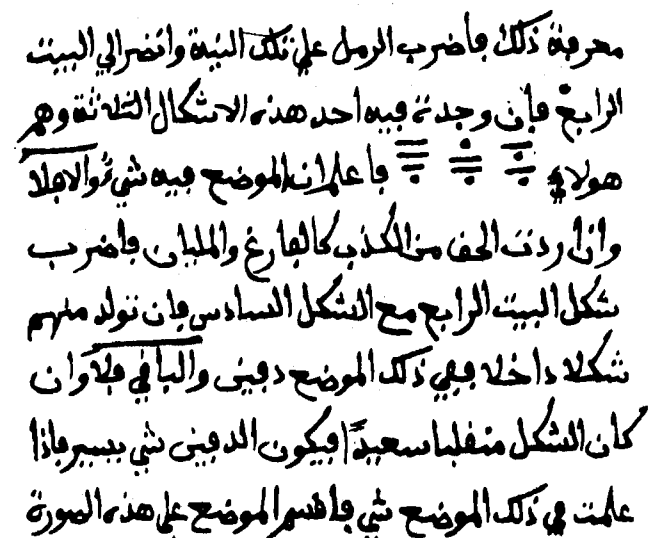 معرفة ذلك فاضرب الرمل علي تلك النية وانضر الي البيت
الرابع فإن وجدت فيه احد هذه الاشكال الثلاثة وهم
هولاء فاعلم ان الموضع فيه شيء والا فلا
وان اردت الحق من الكذب كالفارغ والمليان فاضرب
شكل البيت الرابع مع الشكل السادس فان تولد منهم
شكلا داخلا ففي ذلك الموضع دفين والباقي فلا وان
كان الشكل منقلبا سعيدًا فيكون الدفين شي يسير فاذا
علمت في ذلك الموضع شي فاقسم الموضع علي هذه الصورة